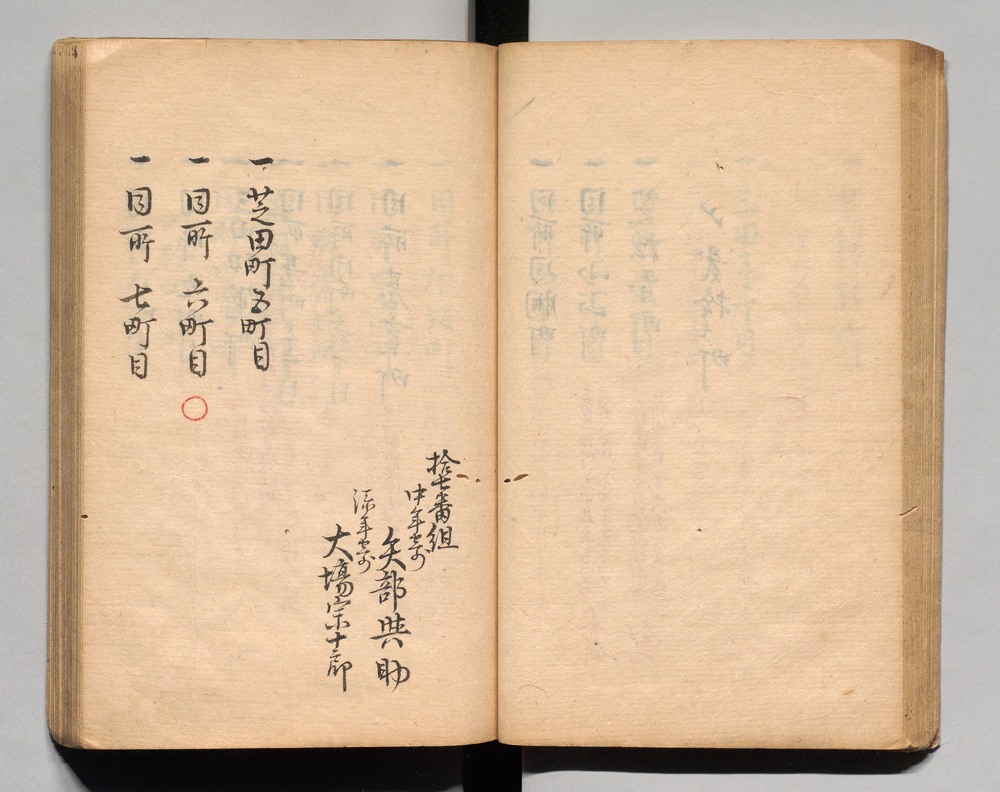 拾七番組
中年寄
矢部與助
添年寄
大塲宗十郎
一 芝田町五町目
一 同所 六町目
一 同所 七町目